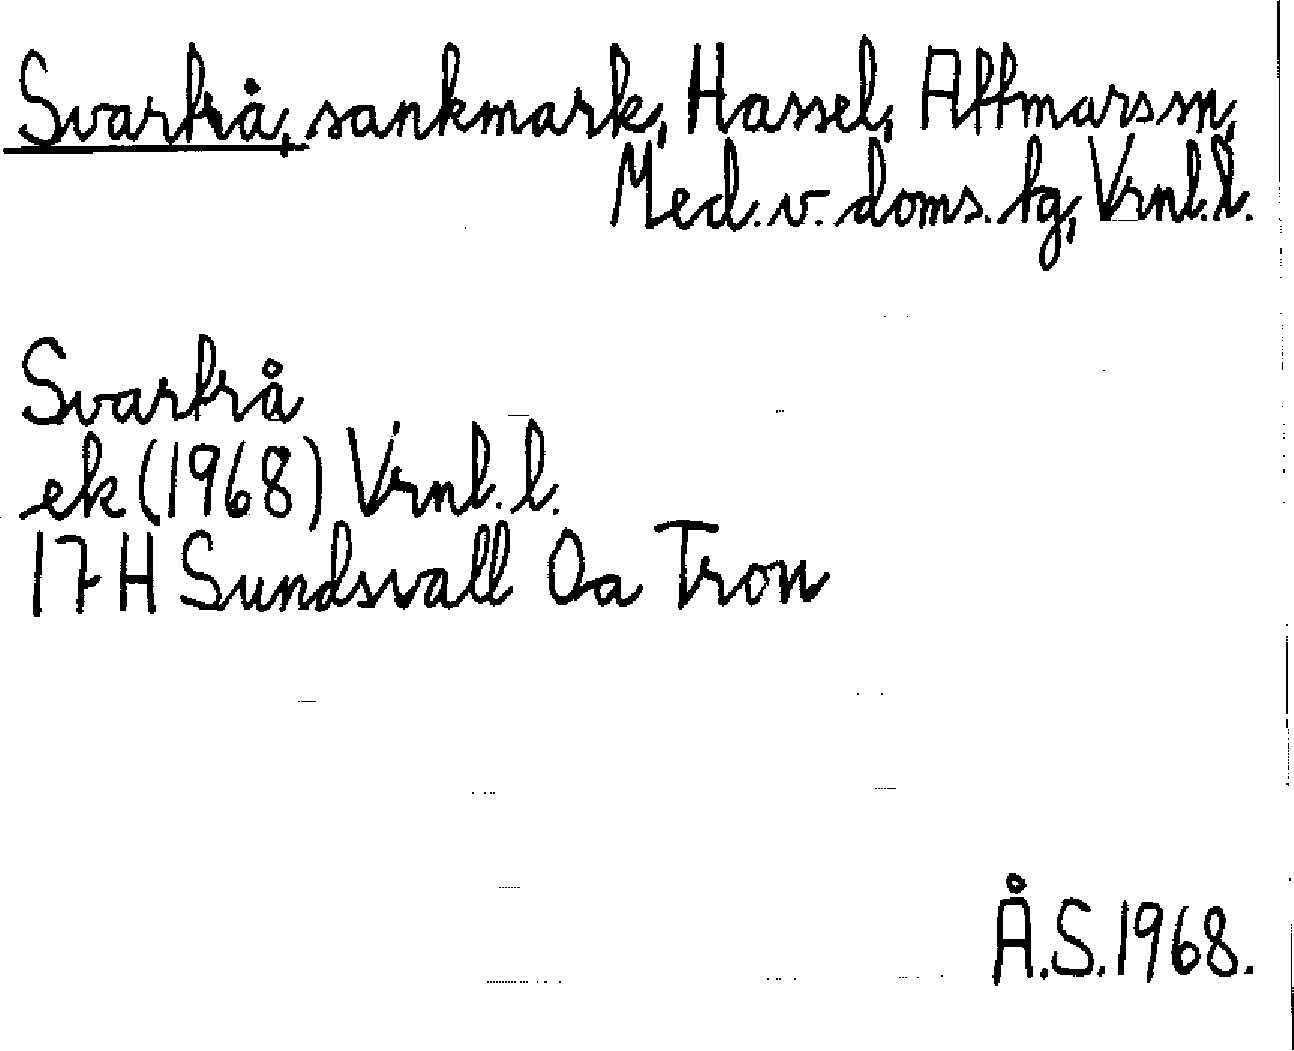 Svartrå, sankmark, Hassel, Attmars sn,
Med. v. doms. tg, Vrnl. l.
Svartrå
ek (1968) Vrnl. l.
17H Sundsvall Oa Tron
Å.S. 1968.